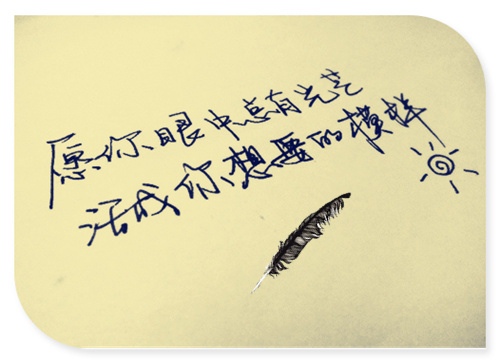 愿你眼中总有光芒
活成你想要的模样